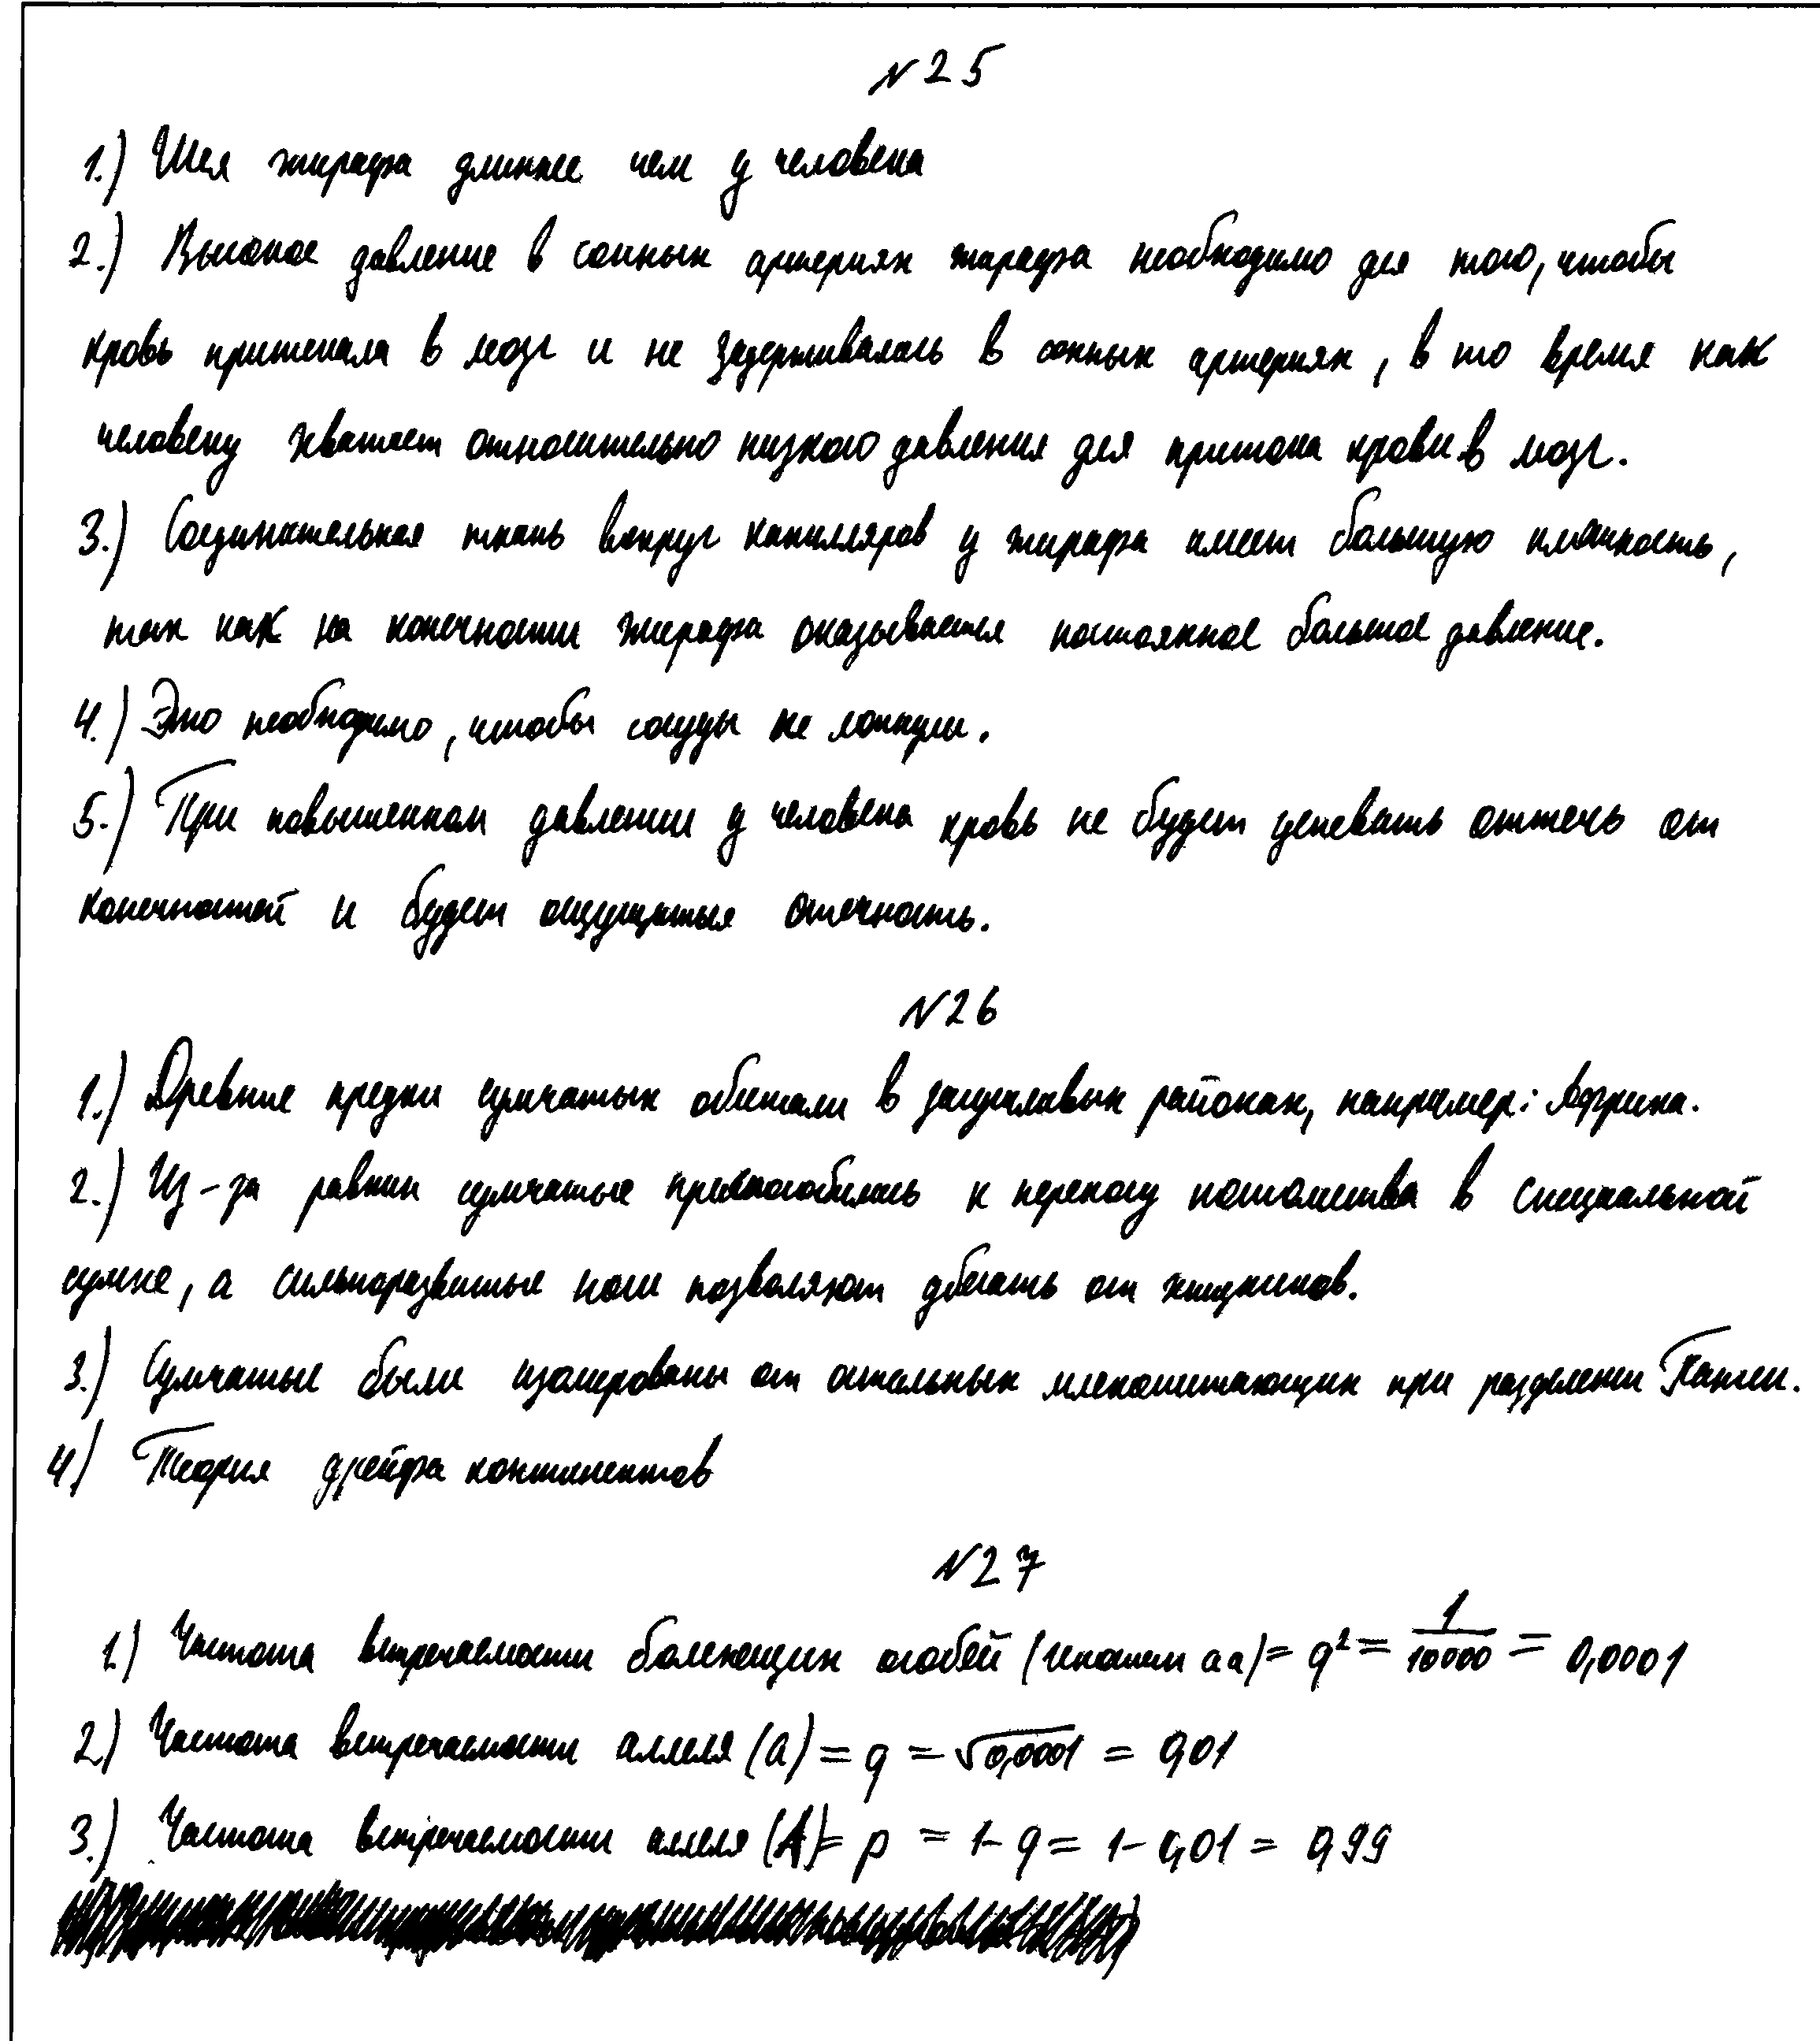 №25
1.) Шея жирафа длиннее чем у человека
2.) Высокое давление в сонных артериях жирафа необходимо для того, чтобы
кровь притекала в мозг и не задерживалась в сонных артериях, в то время как
человеку хватает относительно низкого давления для притока крови в мозг.
3.) Соединительная ткань вокруг капилляров у жирафа имеет большую плотность,
так как на конечности жирафа оказывается постоянное большое давление.
4.) Это необходимо, чтобы сосуды не лопнули.
5.) При повышенном давлении у человека кровь не будет успевать оттечь от
конечностей и будет ощущаться отечность.
№26
1.) Древние предки сумчатых обитали в засушливых районах, например: Африка.
2.) Из-за равнин сумчатые приспособились к переносу потомства в специальной
сумке, а сильноразвитые ноги позволяют убегать от хищников.
3.) Сумчатые были изолированы от остальных млекопитающих при разделении Пангеи.
4) Теория дрейфа континентов
№27
1.) Частота встречаемости болеющих особей (генотип aa) = q² = 1/10000 = 0,0001
2.) Частота встречаемости аллеля (a) = q = √0,0001 = 0,01
3.) Частота встречаемости аллеля (A) = p = 1 - q = 1 - 0,01 = 0,99